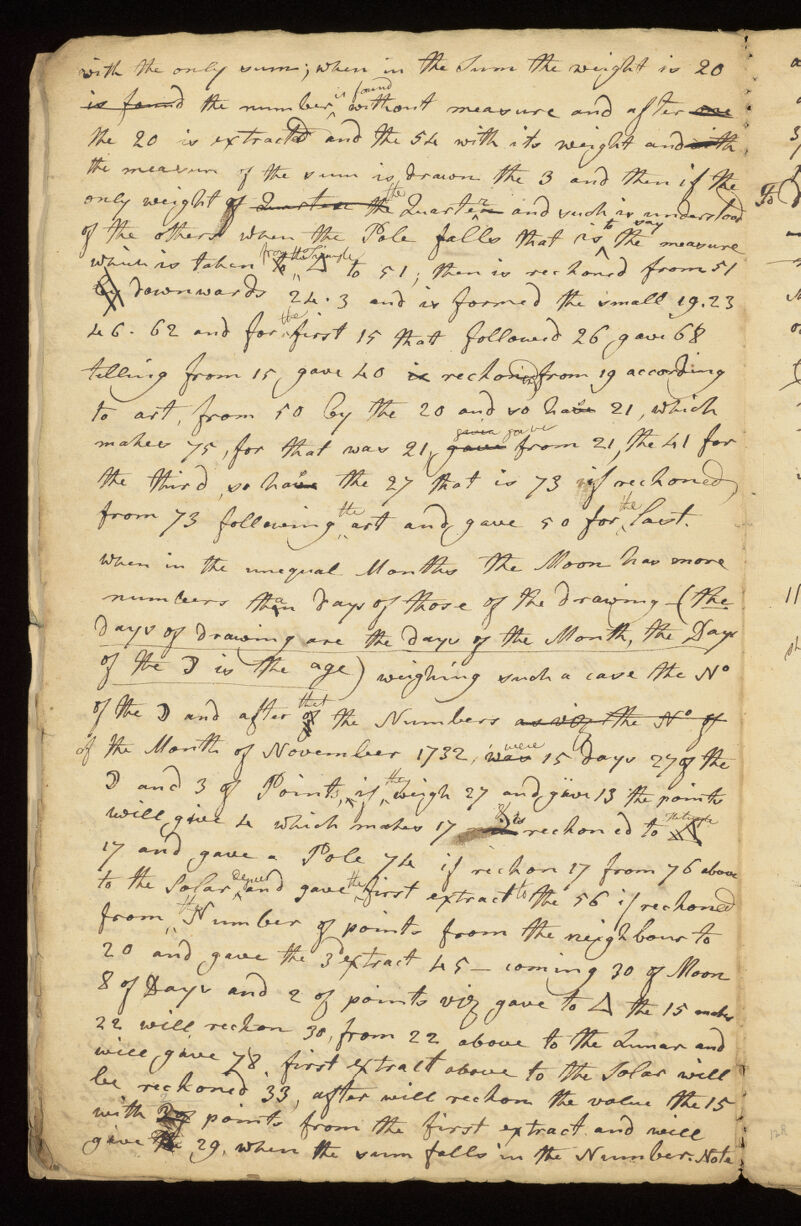 with the only sum; when in the Sum the weight is 20
is found the number is found without measure and after one
the 20 is extracted and the 54 with its weight and with
the measure of the sum is drawn the 3 and then if the
only weight of Quartese the the Quarter and such is understood
of the others when the Pole falls that is to say the measure
which is taken from the Triangle to △ to 51; then is reckoned from 51
by downwards 24.3 and is formed the small 19.23
46. 62 and for the first 15 that followed 26 gave 68
telling from 15, gave 40 is reckoned from 19 according
to art, from 50 by the 20 and so has 21, which
makes 75, for that was 21, gave from 21, the 41 for
the third, so has the 27 that is 73 if reckoned
from 73 following the art and gave 50 for the last.
when in the unequal Months the Moon has more
numbers than days of those of the drawing - (the
days of drawing are the days of the Month, the Days
of the ☽ is the age) weighing such a case the No
of the ☽ and after that of the Numbers as viz the No of
of the Month of November 1732, was were 15 Days 27 of the
☽ and 3 of Points, if they weigh 27 and give 13 the points
will give 4 which makes 17 is reckoned to △
17 and gave a Pole 74 if reckon 17 from 76 above
to the Solar and gave the first extract to the 56 if reckoned
from the Number of points from the neighbour to
20 and gave the 3d extract 45 - coming 30 of Moon
8 of Days and 2 of points viz gave to △ the 15 makes
22 will reckon 30, from 22 above to the Lunar and
will give 78 first extract above to the Solar will
be reckoned 33, after will reckon the value the 15
with points from the first extract and will
give the 29, when the sum falls in the Number. Note
To